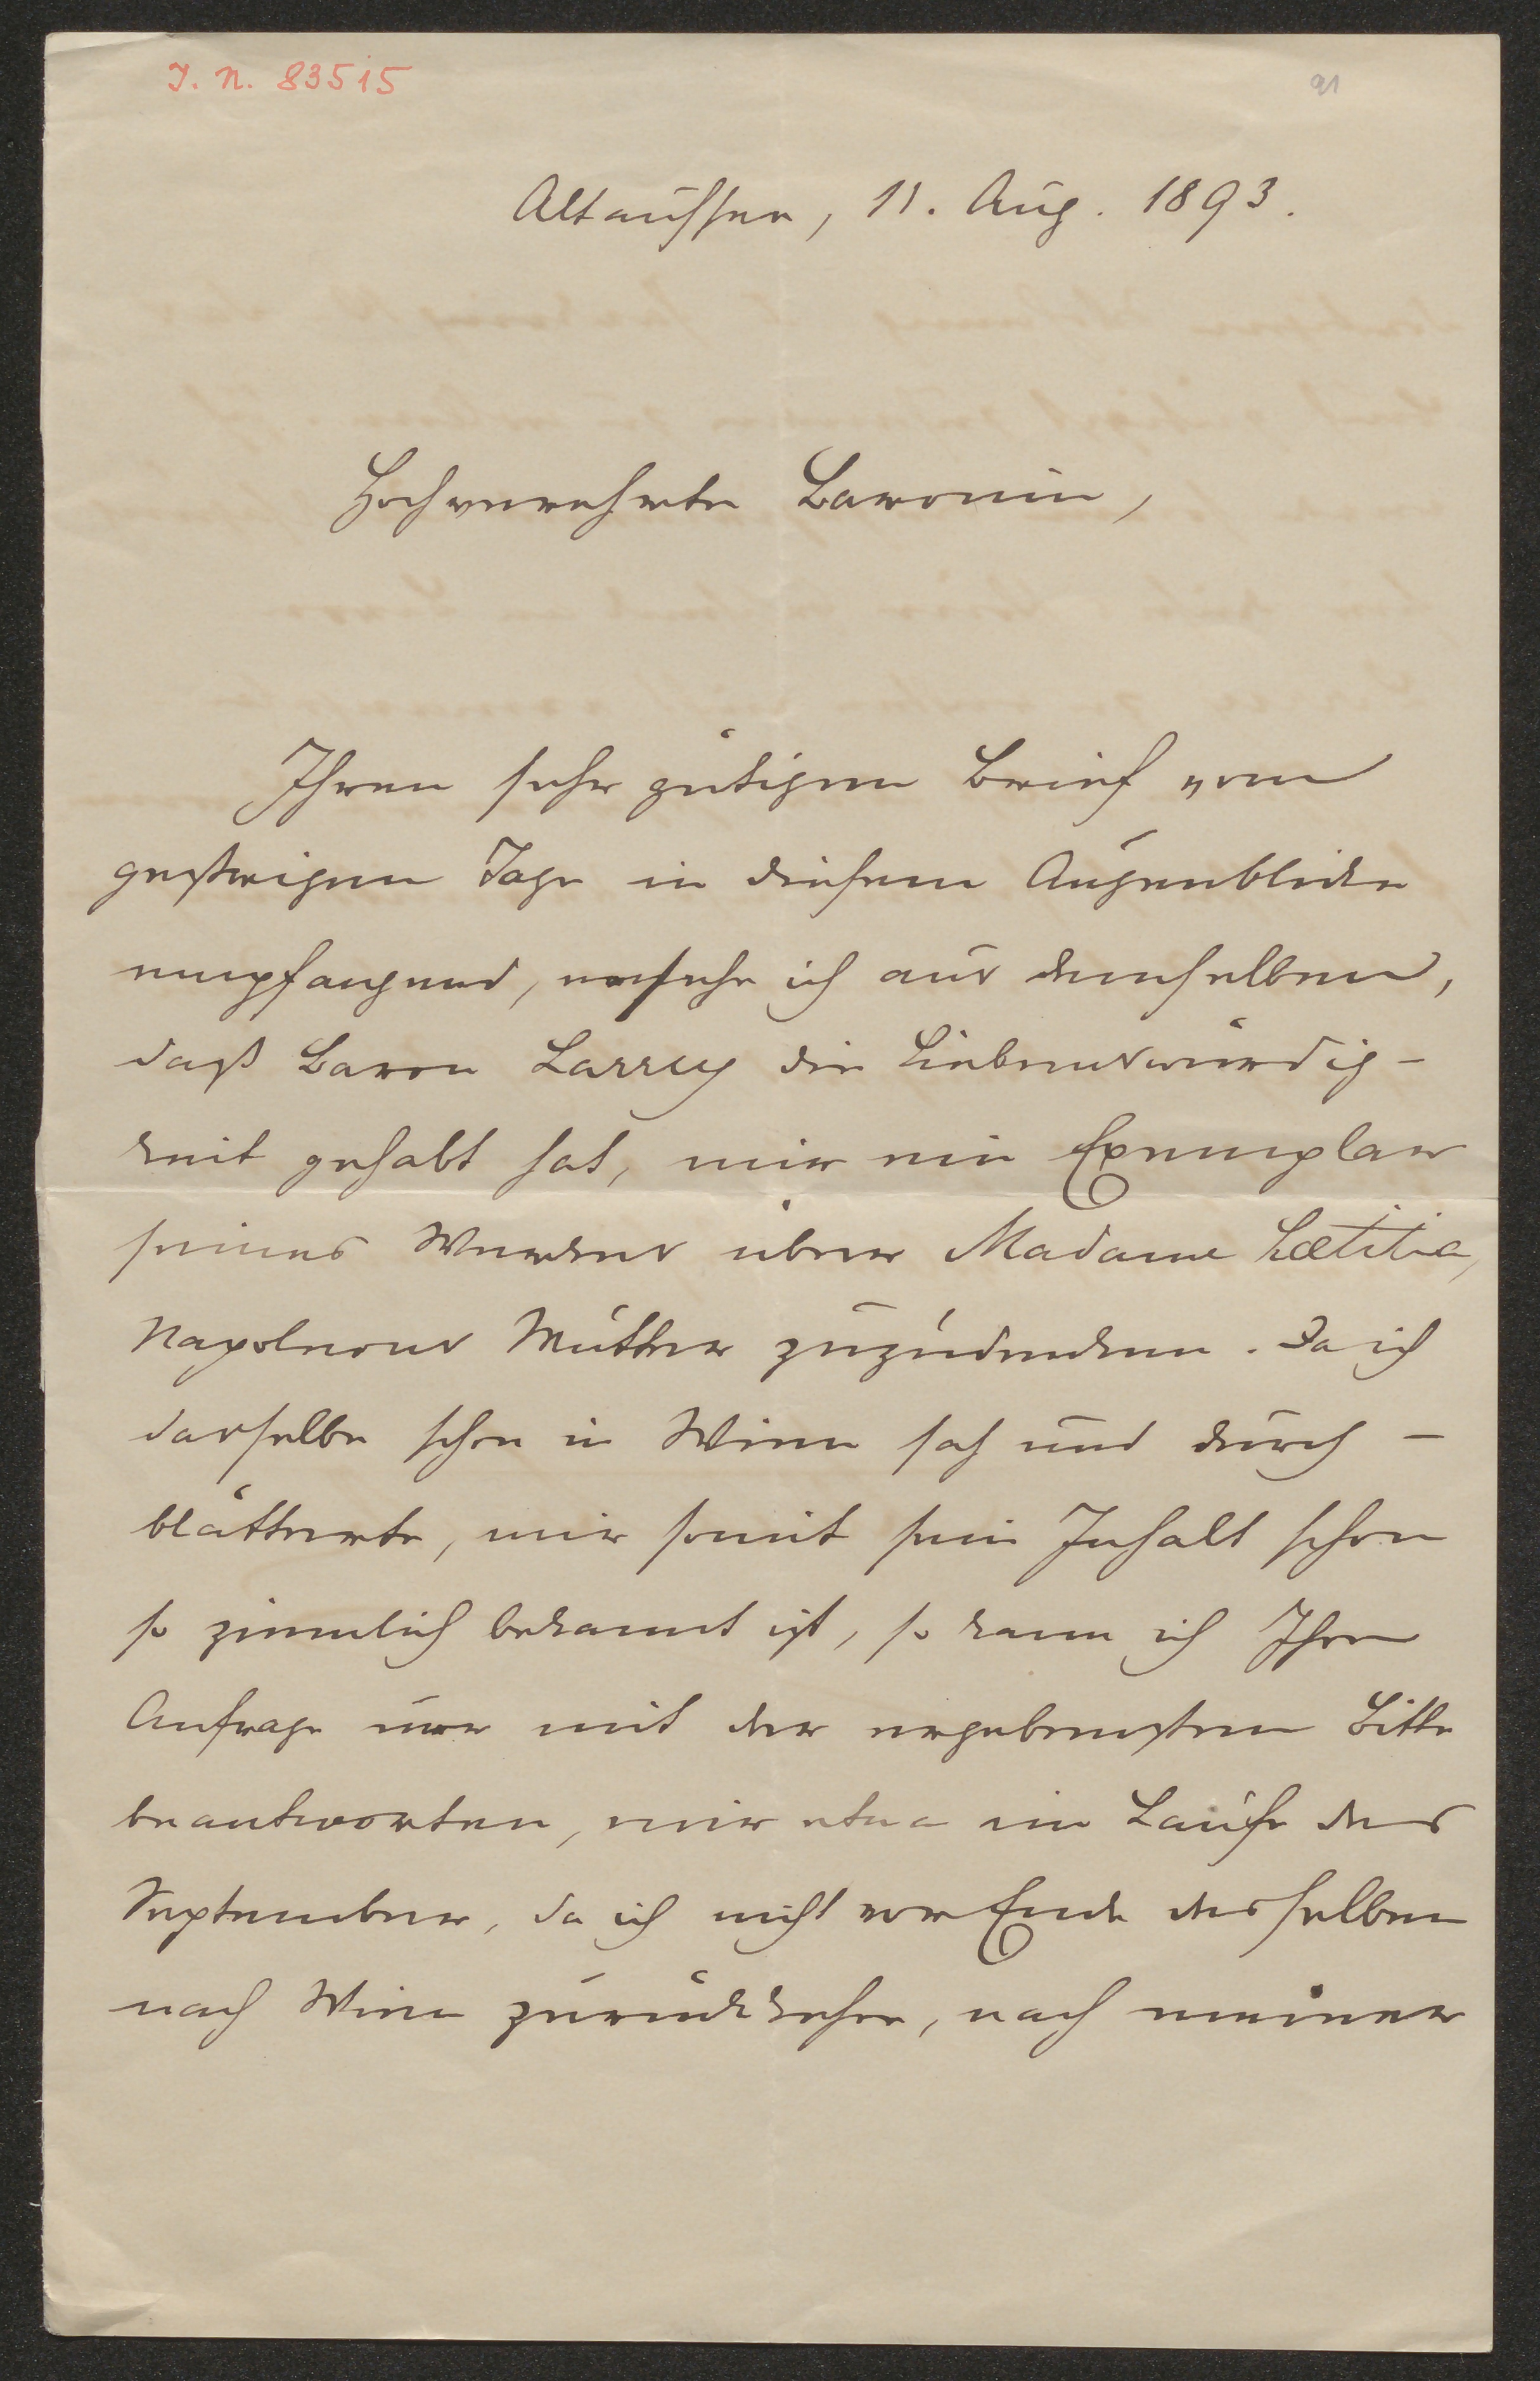 I. N. 83515
91
Altaussee, 11. Aug. 1893.
Hochverehrte Baronin,
Ihren sehr gütigen Brief vom
gestrigen Tage in diesem Augenblicke
empfangend, ersehe ich aus demselben,
daß Baron Larrey die Liebenswürdig-
keit gehabt hat, mir ein Exemplar
seines Werkes über Madame Lætitia,
Napoleons Mutter zuzudenken. Da ich
dasselbe schon in Wien sah und durch-
blätterte, mir somit sein Inhalt schon
so ziemlich bekannt ist, so kann ich Ihre
Anfrage nur mit der ergebensten Bitte
beantworten, mir etwa im Laufe des
September, da ich nicht vor Ende desselben
nach Wien zurückkehre, nach meiner